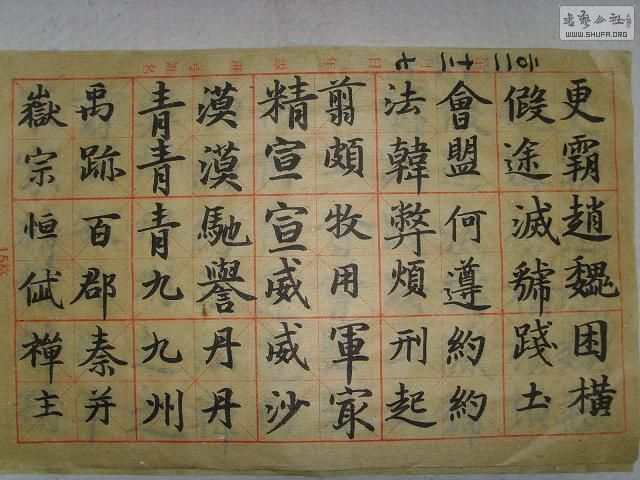 書藝公社
WWW.SHUFA.ORG
更霸趙魏困橫
假途滅虢踐土
會盟何遵約約
法韓弊煩刑起
翦頗牧用軍冣
精宣宣威威沙
漠漠馳譽丹丹
青青青九九州
禹跡百郡秦并
嶽宗恒岱禪主